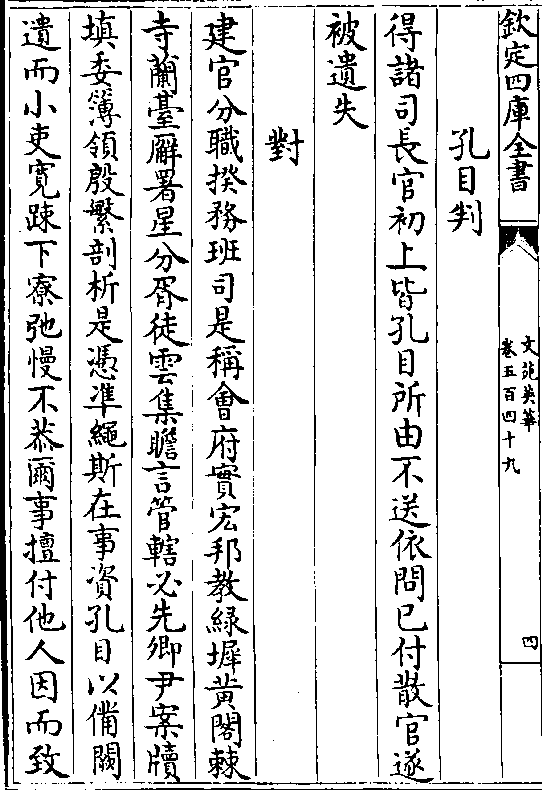 欽定四庫全書
文苑英華
卷五百四十九
四
孔目判
得諸司長官初上皆孔目所由不送依問已付散官遂
被遺失
對
建官分職揆務班司是稱會府實宏邦教緑墀黃閣棘
寺蘭臺廨署星分胥徒雲集瞻言管轄必先卿尹案牘
填委簿領殷繁剖析是憑凖繩斯在事資孔目以備闕
遺而小吏寛踈下寮弛慢不恭爾事擅付他人因而致